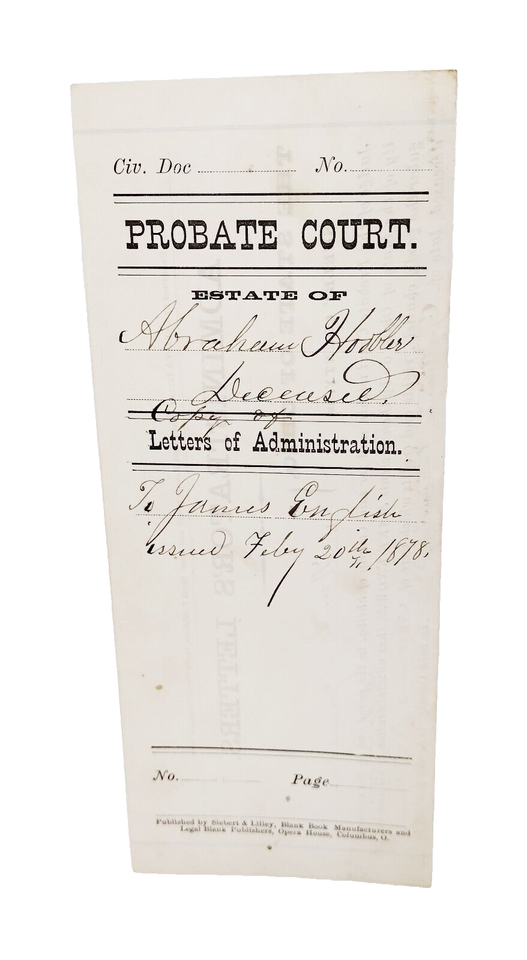 Civ. Doc .......... No. ..........
PROBATE COURT.
ESTATE OF
Abraham Hobler
Deceased.
Copy of
Letters of Administration.
To James English
issued Feby 20th, 1878.
No. .......... Page ..........
Published by Siebert & Lilley, Blank Book Manufacturers and
Legal Blank Publishers, Opera House, Columbus, O.